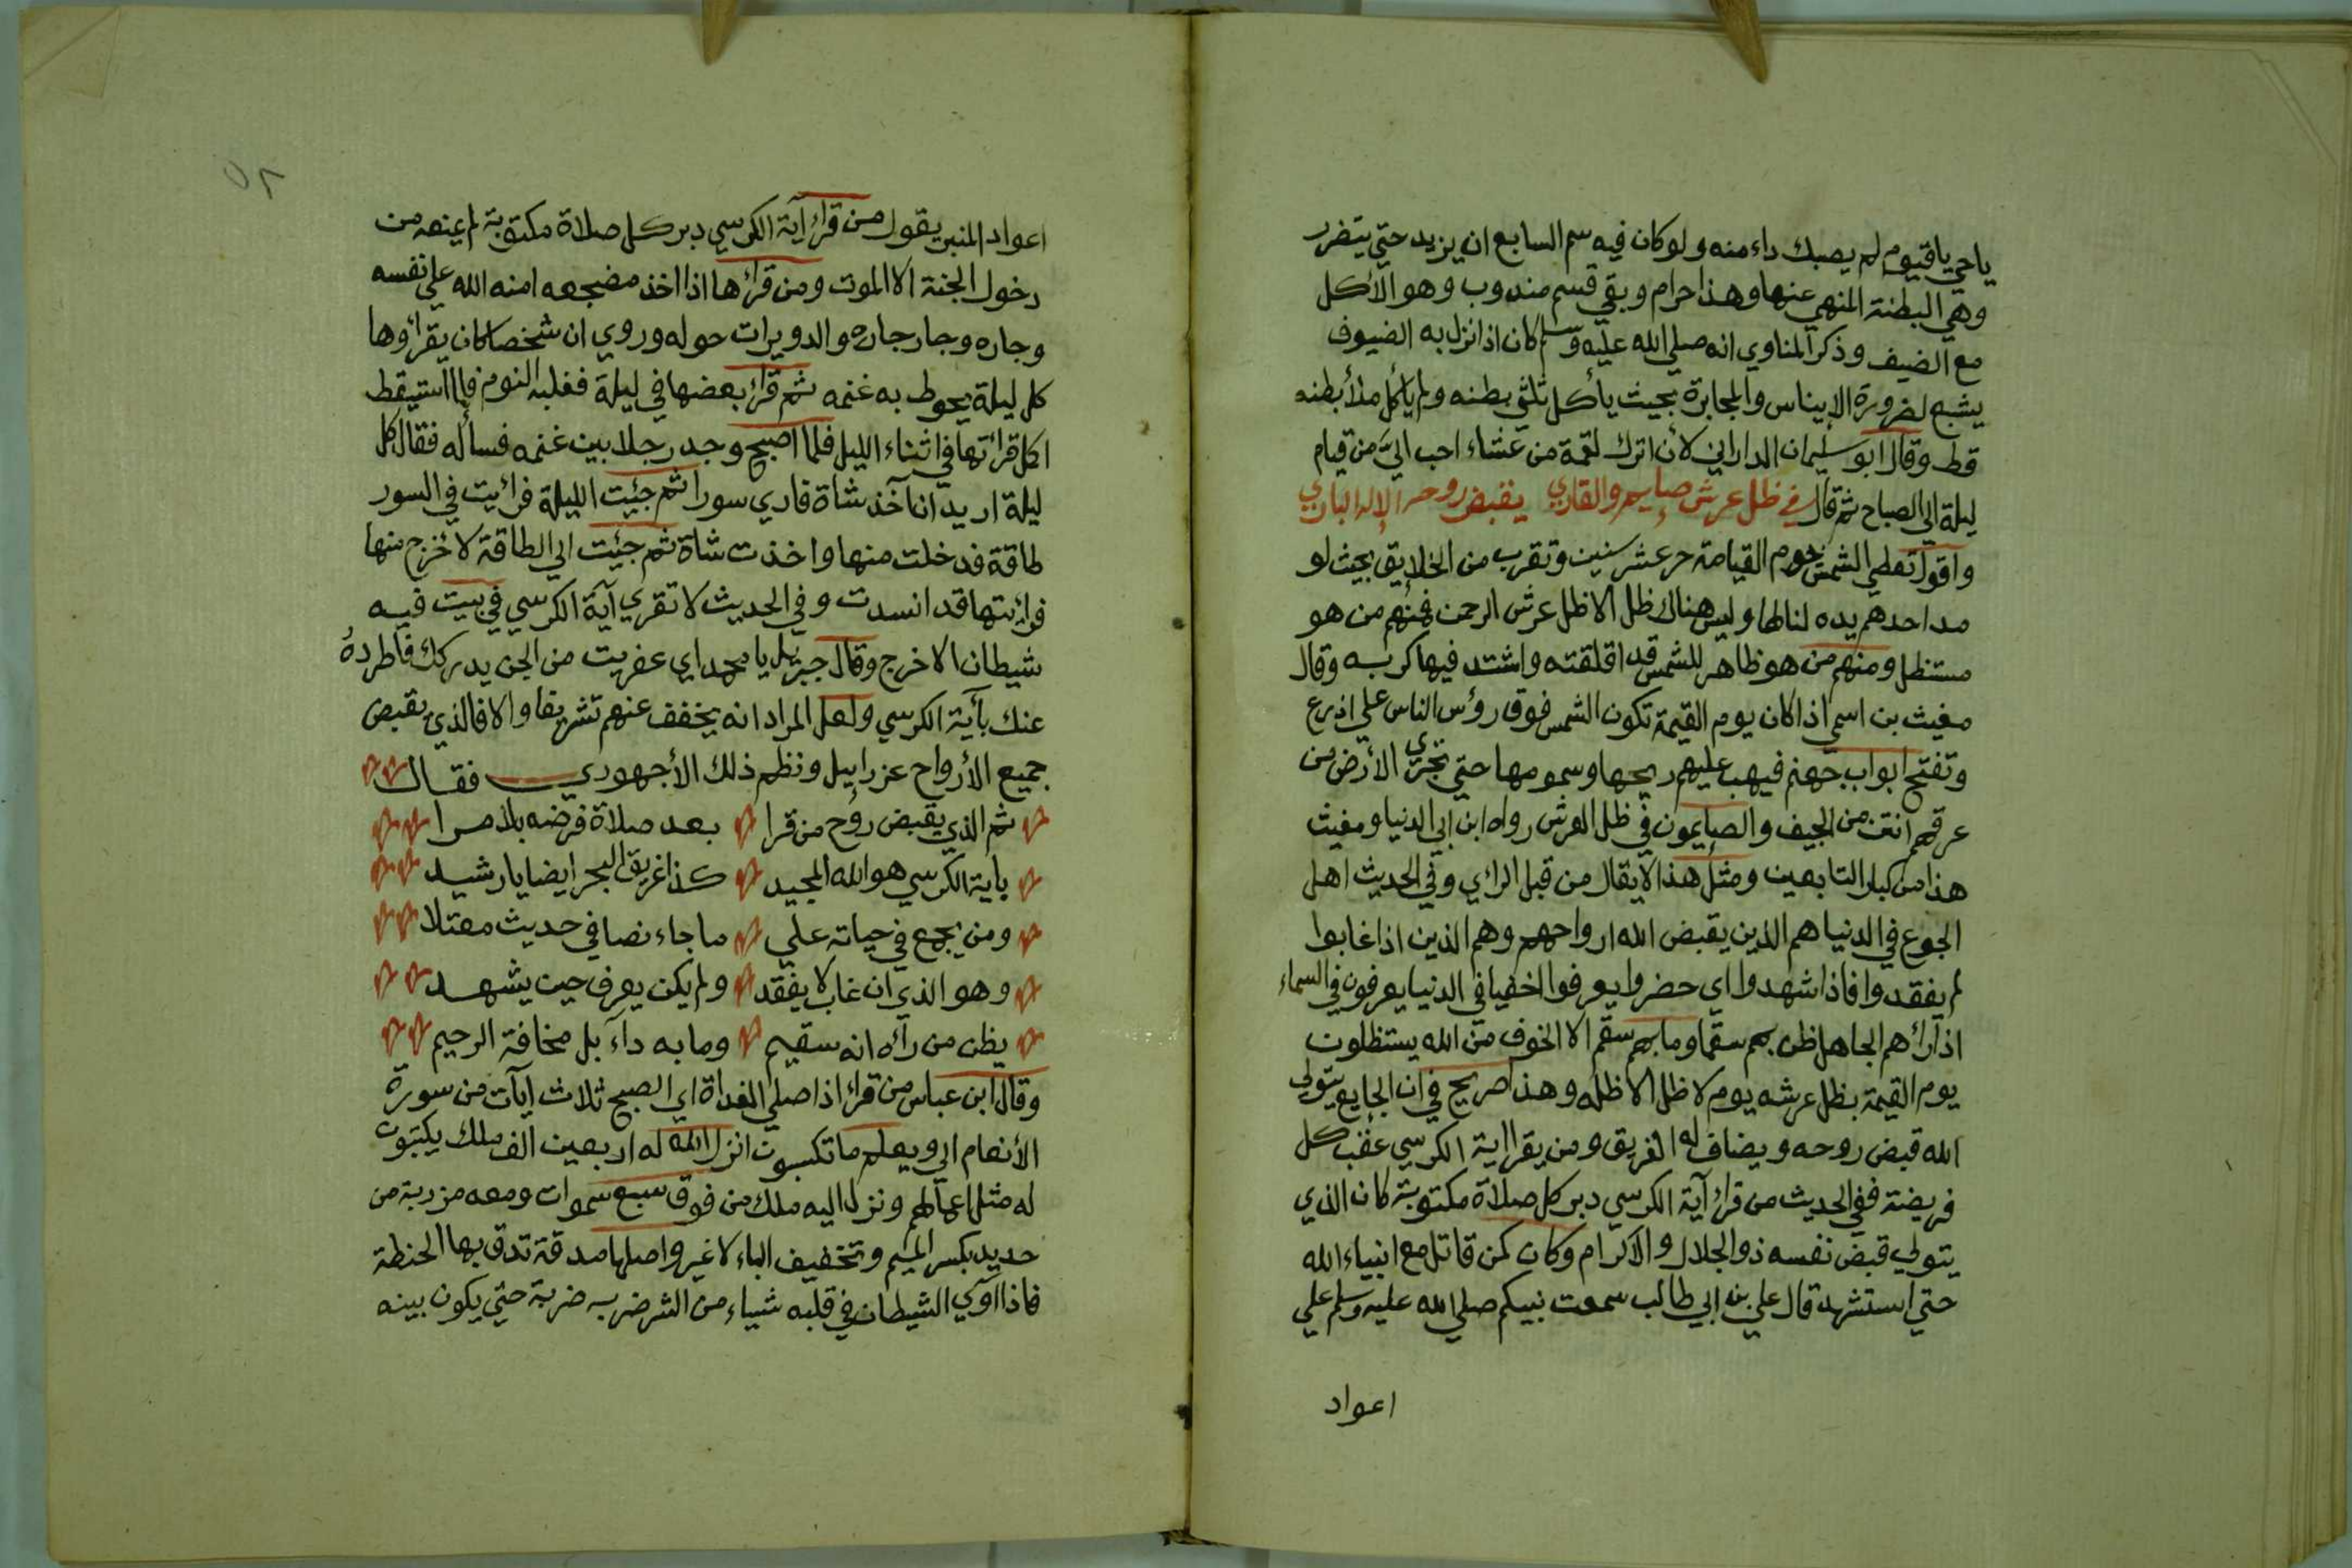 ياحي ياقيوم لم يصبك داء منه ولو كان فيه سم السابع ان يزيد حتي يتضرر
وهي البطنة المنهي عنها وهذا حرام وبقي قسم مندوب وهو الأكل
مع الضيف وذكر المناوي انه صلي الله عليه وسلم كان اذا نزل به الضيوف
يشبع لضرورة الإيناس والمجابرة بحيث يأكل ثلثي بطنه ولم يأكل ملأ بطنه
قط وقال ابو سليمان الداراني لأن اترك لقمة من عشاء احب اليّ من قيام
ليلة الي الصباح ثم قال في ظل عرش صايم والقاري يقبض روحه الإله الباري
واقول تعطي الشمس يوم القيامة حر عشر سنين وتقرب من الخلايق بحيث لو
مد احدهم يده لنالها وليس هناك ظل الا ظل عرش الرحمن فمنهم من هو
مستظل ومنهم من هو ظاهر للشمس قد اقلقته واشتد فيها كربه وقال
مغيث بن اسمي اذا كان يوم القيمة تكون الشمس فوق رؤس الناس علي اذرع
وتفتح ابواب جهنم فيهب عليهم ريحها وسمومها حتي تجري الأرض من
عرقهم انتن من الجيف والصايمون في ظل العرش رواه ابن ابي الدنيا ومغيث
هذا من كبار التابعين ومثل هذا لا يقال من قبل الراي وفي الحديث اهل
الجوع في الدنيا هم الذين يقبض الله ارواحهم وهم الذين اذا غابوا
لم يفقدوا فاذا شهدوا اي حضروا يعرفوا اخفيا في الدنيا يعرفون في السماء
اذا رائهم الجاهل ظن بهم سقما وما بهم سقم الا الخوف من الله يستظلون
يوم القيمة بظل عرشه يوم لا ظل الا ظله وهذا صريح في ان الجايع يتولي
الله قبض روحه ويضاف له الغريق ومن يقرا اية الكرسي عقب كل
فريضة ففي الحديث من قرائ آية الكرسي دبر كل صلاة مكتوبة كان الذي
يتولي قبض نفسه ذو الجلال والاكرام وكان كمن قاتل مع انبياء الله
حتي استشهد قال علي بن ابي طالب سمعت نبيكم صلي الله عليه وسلم علي
اعواد
٥٢
اعواد المنبر يقول من قرائ آية الكرسي دبر كل صلاة مكتوبة لم يمنعه من
دخول الجنة الا الموت ومن قرائها اذا اخذ مضجعه امنه الله علي نفسه
وجاره وجار جاره والدويرات حوله وروي ان شخصا كان يقرائوها
كل ليلة يحوط به غنمه ثم قرائ بعضها في ليلة فغلبه النوم فلما استيقظ
اكل قرائتها في اثناء الليل فلما اصبح وجد رجلا بين غنمه فسأله فقال كل
ليلة اريد ان آخذ شاة فاري سورا ثم جئت الليلة فرائيت في السور
طاقة فدخلت منها واخذت شاة ثم جئت الي الطاقة لأخرج منها
فرايتها قد انسدت وفي الحديث لا تقري آية الكرسي في بيت فيه
شيطان الا خرج وقال جبريل يا محمد اي عفريت من الجن يدركك فاطرده
عنك بآية الكرسي ولعل المراد انه يخفف عنهم تشريفا والا فالذي يقبض
جميع الأرواح عزراييل ونظم ذلك الأجهوري فقال
ثم الذي يقبض روح من قرا بعد صلاة فرضه بلا مرا
بأية الكرسي هو الله المجيد كذا غريق البحر ايضا يا رشيد
ومن يجع في حياته علي ما جاء نصا في حديث مقتلا
وهو الذي ان غاب لا يفقد ولم يكن يعرف حين يشهد
يظن من رآه انه سقيم وما به داء بل مخافة الرحيم
وقال ابن عباس من قرائ اذا صلي الغداة اي الصبح ثلاث ايآت من سورة
الأنعام الي ويعلم ما تكسبون انزل الله له اربعين الف ملك يكتبون
له مثل اعمالهم ونزل اليه ملك من فوق سبع سموات ومعه مرزبة من
حديد بكسر الميم وتخفيف الباء لا غير واصلها مدقة تدق بها الحنطة
فاذا اوكي الشيطان في قلبه شيياء من الشر ضربه ضربة حتي يكون بينه